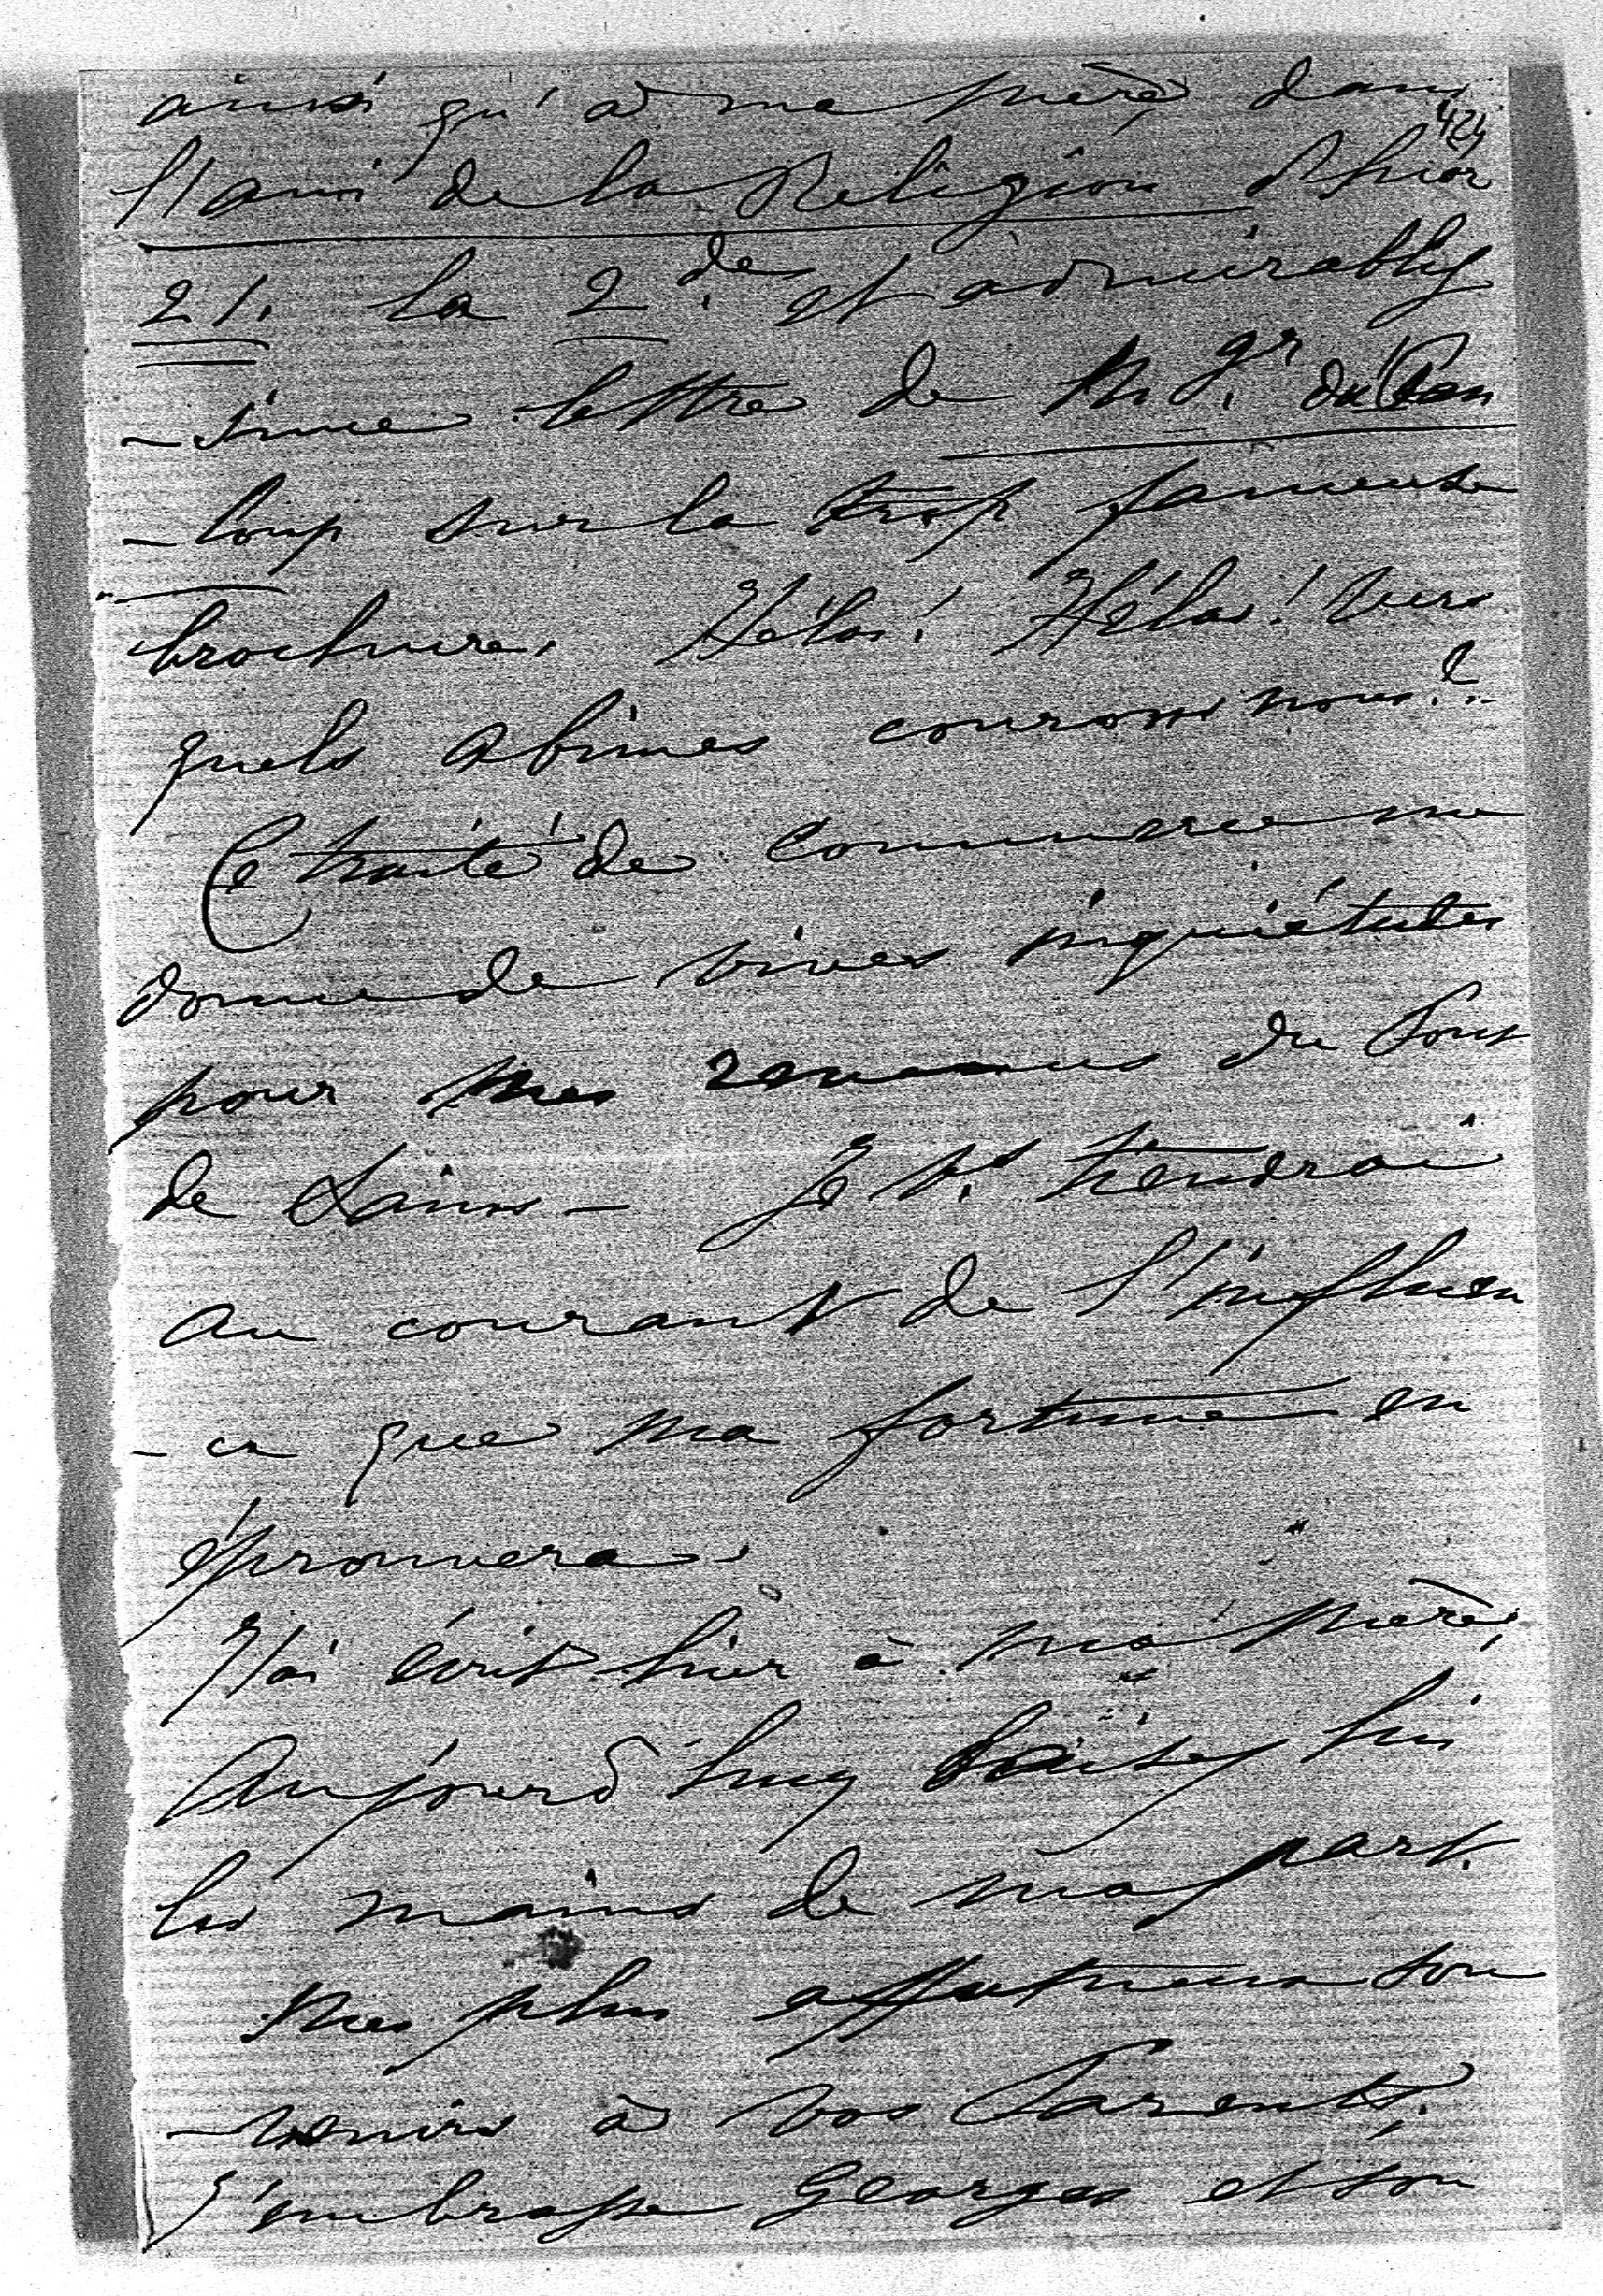 ainsi qu'à ma mère dans
424
l'ami de la Religion d'hier
21. la 2.de et admirablis
-sime lettre de Mgr. du Pan
-loup sur la trop fameuse
brochure. Hélas! Hélas! Vers
quels abimes courons nous?..
Ce traité de commerce me
donne de vives inquiétudes
pour mes revenus du Pont
de Sains - Je Vs. tiendrai
au courant de l'influen
-ce que ma fortune en
éprouvera.
J'ai écrit hier à ma mère;
Aujourd'huy baisez lui
les mains de ma part.
Mes plus affectueux sou
-venirs à vos Parents.
J'embrasse Georges et son